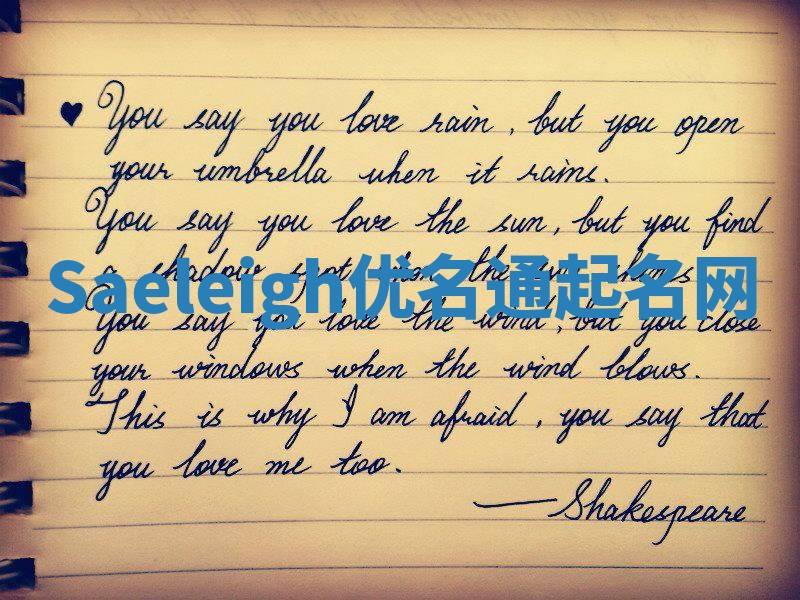 ♥ You say you love rain, but you open
your umbrella when it rains.
You say you love the sun, but you find
a shadow spot when the sun shines
Saeleigh优名通起名网
You say you love the wind, but you close
your windows when the wind blows.
This is why I am afraid, you say that
you love me too.
—Shakespeare